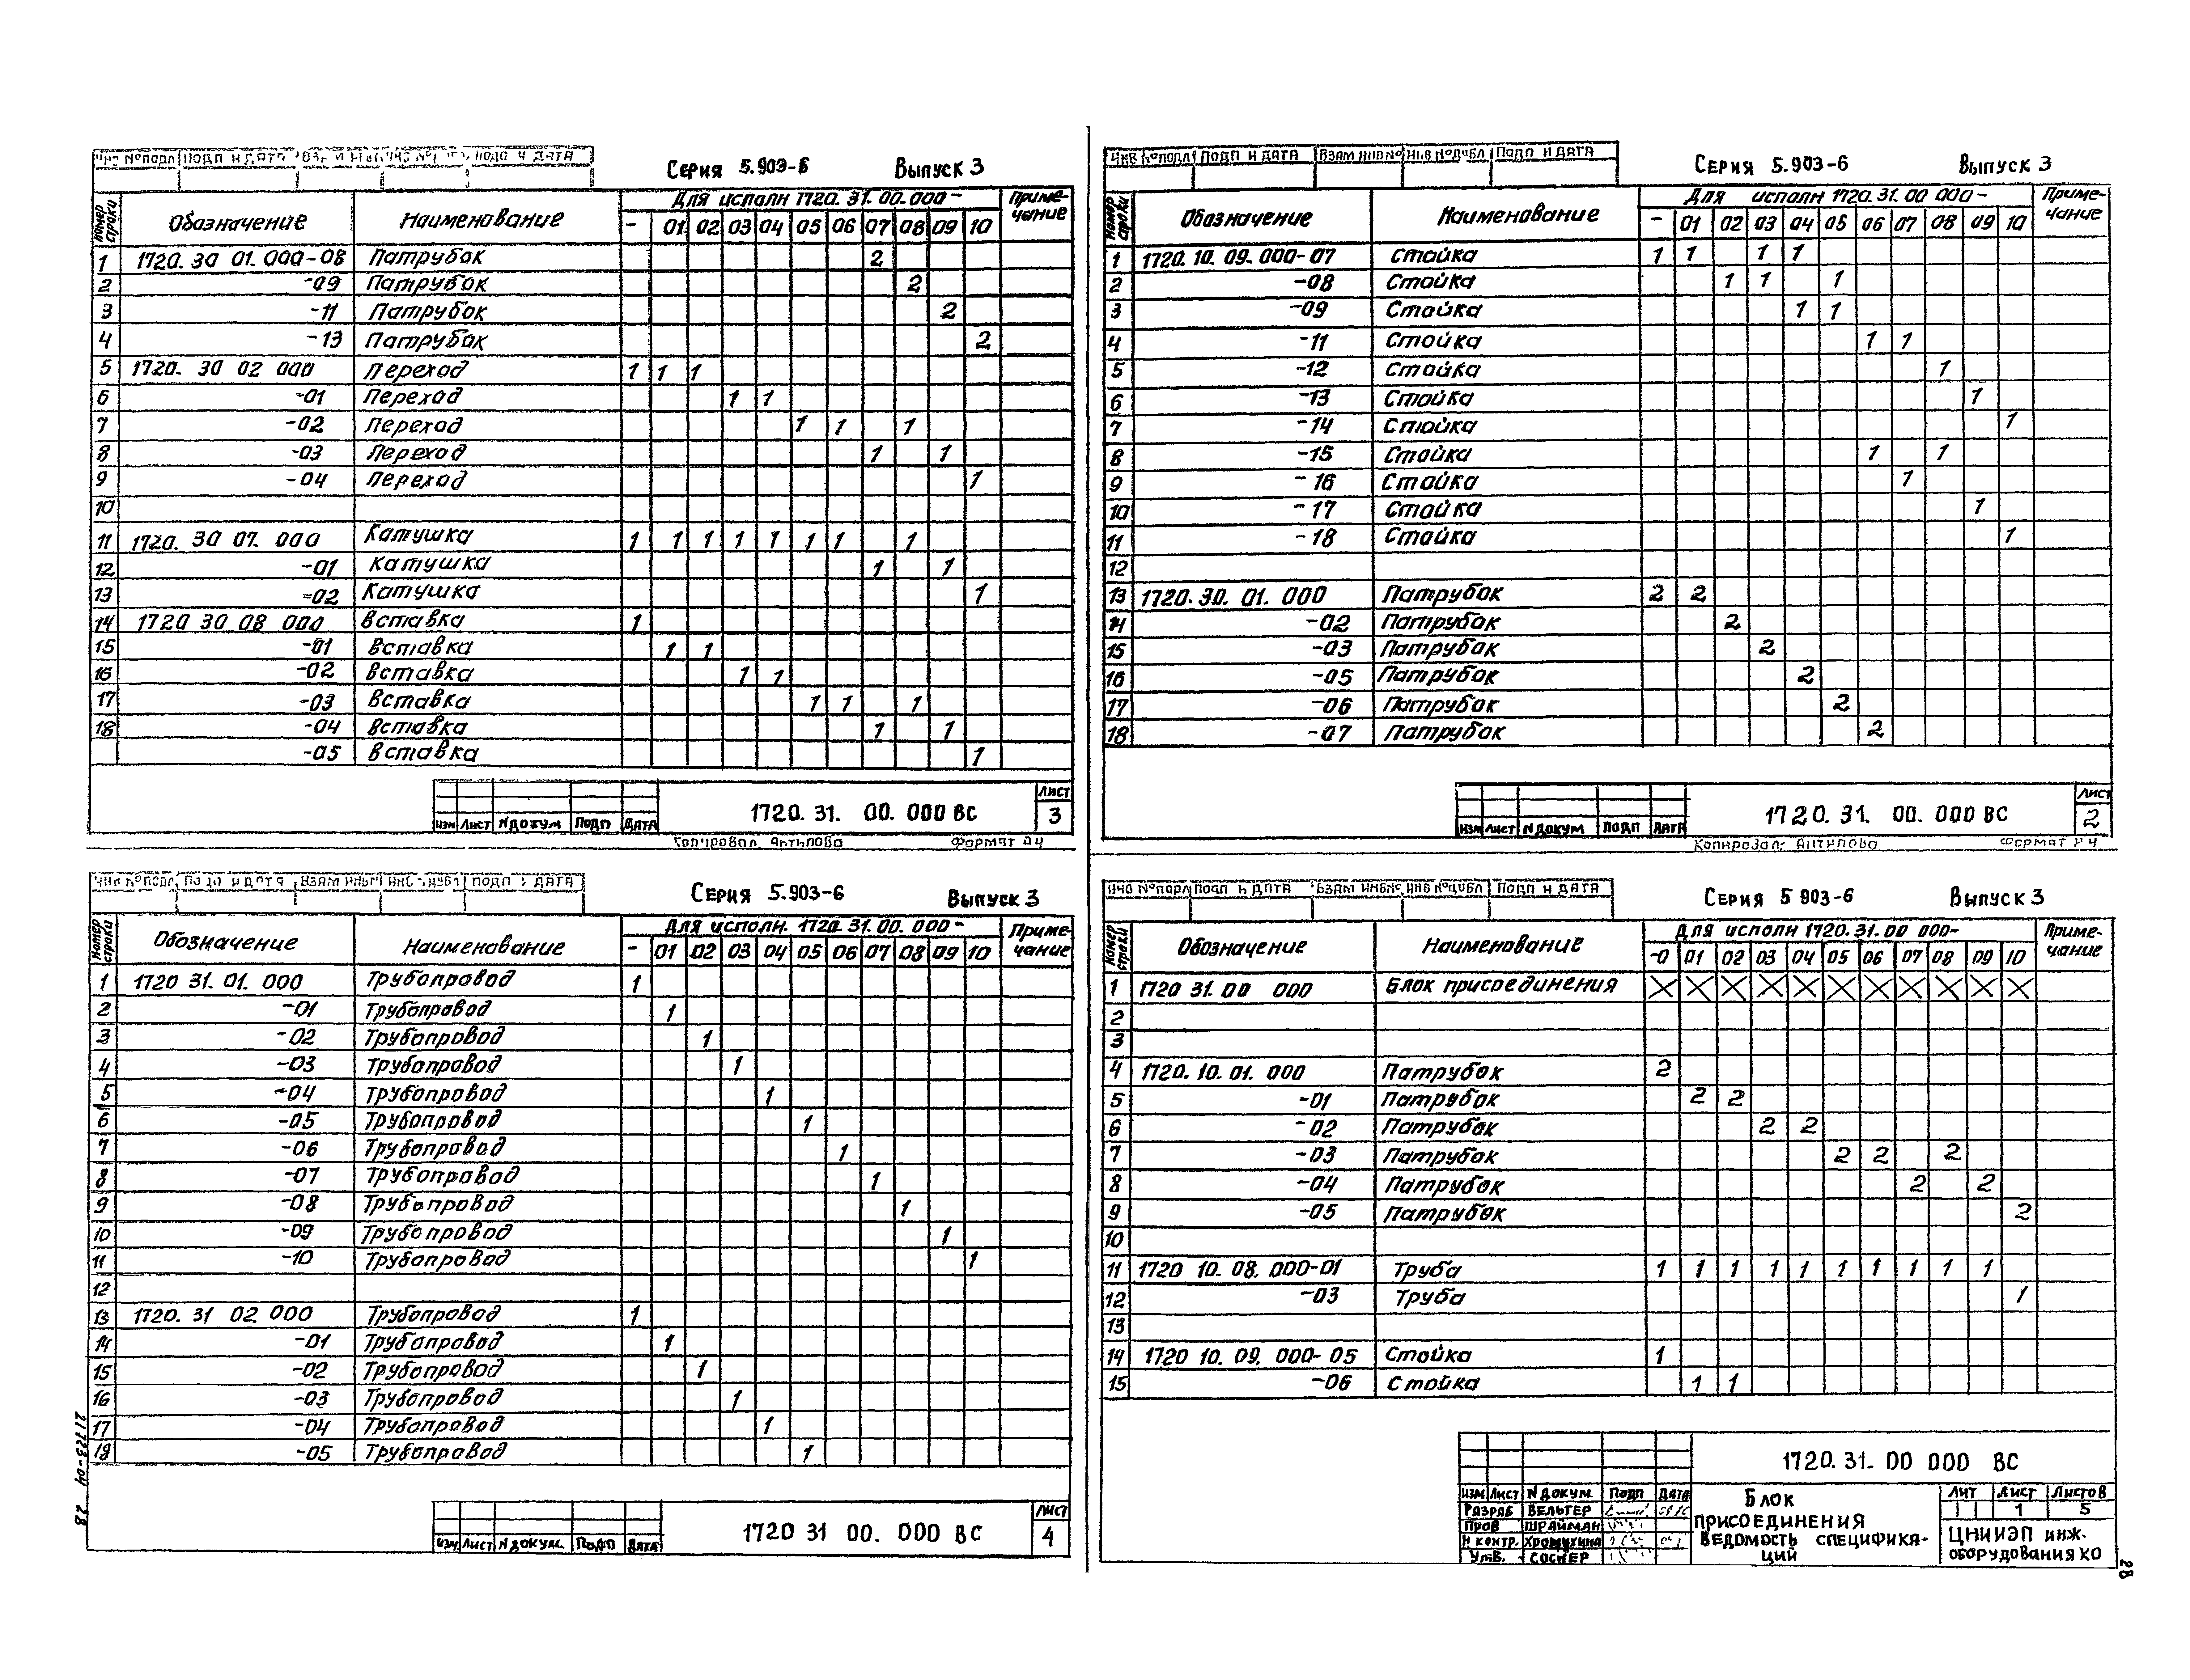 ИНВ №ПОДЛ ПОДП И ДАТА ПОДП И ДАТА
СЕРИЯ 5.903-6 ВЫПУСК 3
Номер строки Обозначение Наименование Для исполн 1720.31.00.000- Примечание
- 01 02 03 04 05 06 07 08 09 10
1 1720.30 01.000-08 Патрубок 2
2 -09 Патрубок 2
3 -11 Патрубок 2
4 -13 Патрубок 2
5 1720. 30 02 000 Переход 1 1 1
6 -01 Переход 1 1
7 -02 Переход 1 1 1
8 -03 Переход 1 1
9 -04 Переход 1
10
11 1720. 30 07. 000 Катушка 1 1 1 1 1 1 1 1
12 -01 Катушка 1 1
13 -02 Катушка 1
14 1720 30 08 000 Вставка 1
15 -01 Вставка 1 1
16 -02 Вставка 1 1
17 -03 Вставка 1 1 1
18 -04 Вставка 1 1
-05 Вставка 1
ИЗМ ЛИСТ N ДОКУМ ПОДП ДАТА 1720.31. 00.000 ВС ЛИСТ 3
Копировал. Антипова Формат А4
ИНВ №ПОДЛ ПОДП И ДАТА ВЗАМ ИНВ № ИНВ №ДУБЛ ПОДП И ДАТА
СЕРИЯ 5.903-6 ВЫПУСК 3
Номер строки Обозначение Наименование Для исполн 1720.31.00 000- Примечание
- 01 02 03 04 05 06 07 08 09 10
1 1720.10.09.000-07 Стойка 1 1 1 1
2 -08 Стойка 1 1 1
3 -09 Стойка 1 1
4 -11 Стойка 1 1
5 -12 Стойка 1
6 -13 Стойка 1
7 -14 Стойка 1
8 -15 Стойка 1 1
9 -16 Стойка 1
10 -17 Стойка 1
11 -18 Стойка 1
12
13 1720.30.01.000 Патрубок 2 2
14 -02 Патрубок 2
15 -03 Патрубок 2
16 -05 Патрубок 2
17 -06 Патрубок 2
18 -07 Патрубок 2
ИЗМ ЛИСТ N ДОКУМ ПОДП ДАТА 1720.31. 00.000 ВС ЛИСТ 2
Копировал: Антипова Формат А4
ИНВ №ПОДЛ ПОДП И ДАТА ВЗАМ ИНВ № ИНВ № ДУБЛ ПОДП И ДАТА
СЕРИЯ 5.903-6 ВЫПУСК 3
Номер строки Обозначение Наименование Для исполн. 1720.31.00.000- Примечание
- 01 02 03 04 05 06 07 08 09 10
1 1720 31.01.000 Трубопровод 1
2 -01 Трубопровод 1
3 -02 Трубопровод 1
4 -03 Трубопровод 1
5 -04 Трубопровод 1
6 -05 Трубопровод 1
7 -06 Трубопровод 1
8 -07 Трубопровод 1
9 -08 Трубопровод 1
10 -09 Трубопровод 1
11 -10 Трубопровод 1
12
13 1720.31 02.000 Трубопровод 1
14 -01 Трубопровод 1
15 -02 Трубопровод 1
16 -03 Трубопровод 1
17 -04 Трубопровод 1
18 -05 Трубопровод 1
ИЗМ ЛИСТ N ДОКУМ. ПОДП ДАТА 1720 31 00. 000 ВС ЛИСТ 4
21723-04 28
ИНВ №ПОДЛ ПОДП И ДАТА ВЗАМ ИНВ № ИНВ №ДУБЛ ПОДП И ДАТА
СЕРИЯ 5 903-6 ВЫПУСК 3
Номер строки Обозначение Наименование Для исполн 1720.31.00 000- Примечание
-0 01 02 03 04 05 06 07 08 09 10
1 1720 31.00 000 Блок присоединения X X X X X X X X X X X
2
3
4 1720.10.01.000 Патрубок 2
5 -01 Патрубок 2 2
6 -02 Патрубок 2 2
7 -03 Патрубок 2 2 2
8 -04 Патрубок 2 2
9 -05 Патрубок 2
10
11 1720 10.08.000-01 Труба 1 1 1 1 1 1 1 1 1 1
12 -03 Труба 1
13
14 1720 10.09.000-05 Стойка 1
15 -06 Стойка 1 1
1720.31. 00 000 ВС
ИЗМ ЛИСТ N ДОКУМ. ПОДП ДАТА
РАЗРАБ ВЕЛЬГЕР
ПРОВ ШРАЙМАН
Н КОНТР. ХРОМИХИНА
УТВ. СОСНЕР
БЛОК
ПРИСОЕДИНЕНИЯ
ВЕДОМОСТЬ СПЕЦИФИКА-
ЦИЙ
ЛИТ ЛИСТ ЛИСТОВ
1 5
ЦНИИЭП ИНЖ-
ОБОРУДОВАНИЯ КО
28